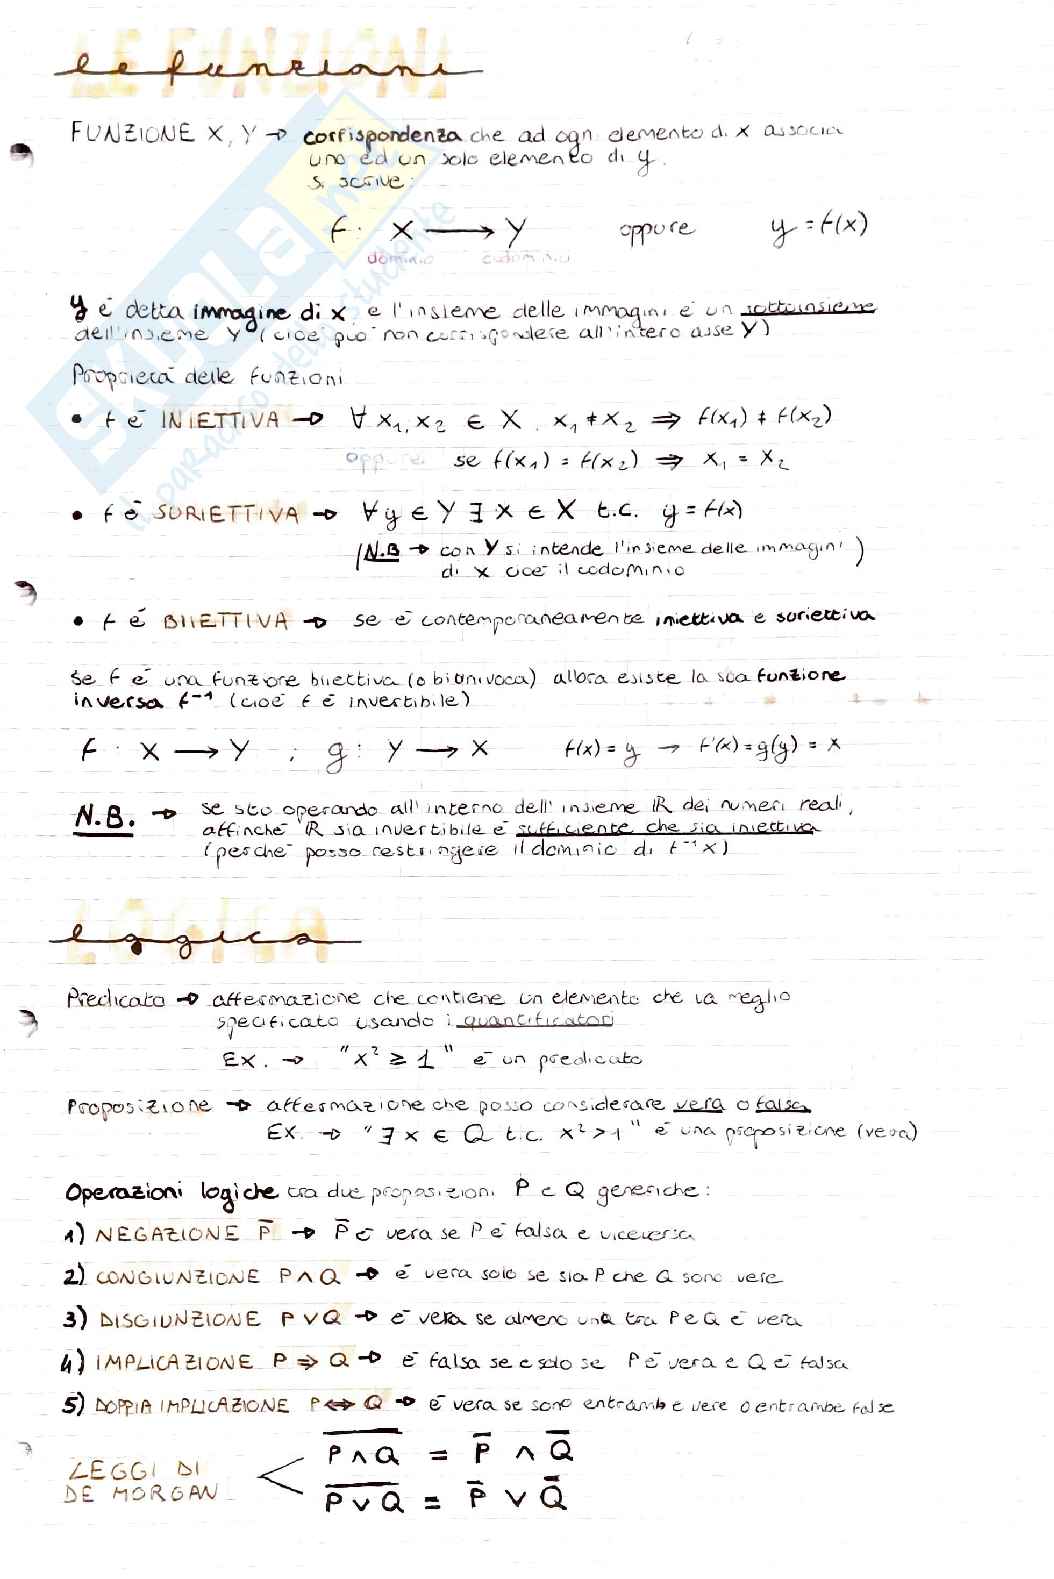 LE FUNZIONI
le funzioni
FUNZIONE X, Y → corrispondenza che ad ogni elemento di x associa
uno ed un solo elemento di y.
Si scrive:
f: X → Y oppure y = f(x)
dominio codominio
y è detta immagine di x e l'insieme delle immagini è un sottoinsieme
dell'insieme Y (cioè può non corrispondere all'intero asse Y)
Proprietà delle funzioni
• f è INIETTIVA → ∀ x₁, x₂ ∈ X . x₁ ≠ x₂ ⇒ f(x₁) ≠ f(x₂)
oppure se f(x₁) = f(x₂) ⇒ x₁ = x₂
• f è SURIETTIVA → ∀ y ∈ Y ∃ x ∈ X t.c. y = f(x)
(N.B → con Y si intende l'insieme delle immagini)
di x cioè il codominio
• f è BIIETTIVA → se è contemporaneamente iniettiva e suriettiva
Se f è una funzione biiettiva (o bionivoca) allora esiste la sua funzione
inversa f⁻¹ (cioè f è invertibile)
f : X → Y ; g : Y → X f(x) = y → f'(x) = g(y) = x
N.B. → se sto operando all'interno dell'insieme ℝ dei numeri reali,
affinché ℝ sia invertibile è sufficiente che sia iniettiva
(perché posso restringere il dominio di f⁻¹ x)
LOGICA
logica
Predicato → affermazione che contiene un elemento che va meglio
specificato usando i quantificatori
EX. → "x² ≥ 1" è un predicato
Proposizione → affermazione che posso considerare vera o falsa
EX. → "∃ x ∈ Q t.c. x² > 1" è una proposizione (vera)
Operazioni logiche tra due proposizioni P e Q generiche:
1) NEGAZIONE P̅ → P̅ è vera se P è falsa e viceversa
2) CONGIUNZIONE P ∧ Q → è vera solo se sia P che Q sono vere
3) DISGIUNZIONE P ∨ Q → è vera se almeno una tra P e Q è vera
4) IMPLICAZIONE P ⇒ Q → è falsa se e solo se P è vera e Q è falsa
5) DOPPIA IMPLICAZIONE P ⇔ Q → è vera se sono entrambe vere o entrambe false
LEGGI DI
DE MORGAN
P̅ ̅∧̅ ̅Q̅ = P̅ ∧ Q̅
P̅ ̅∨̅ ̅Q̅ = P̅ ∨ Q̅
SKUOLA.net
il paradiso dello studente